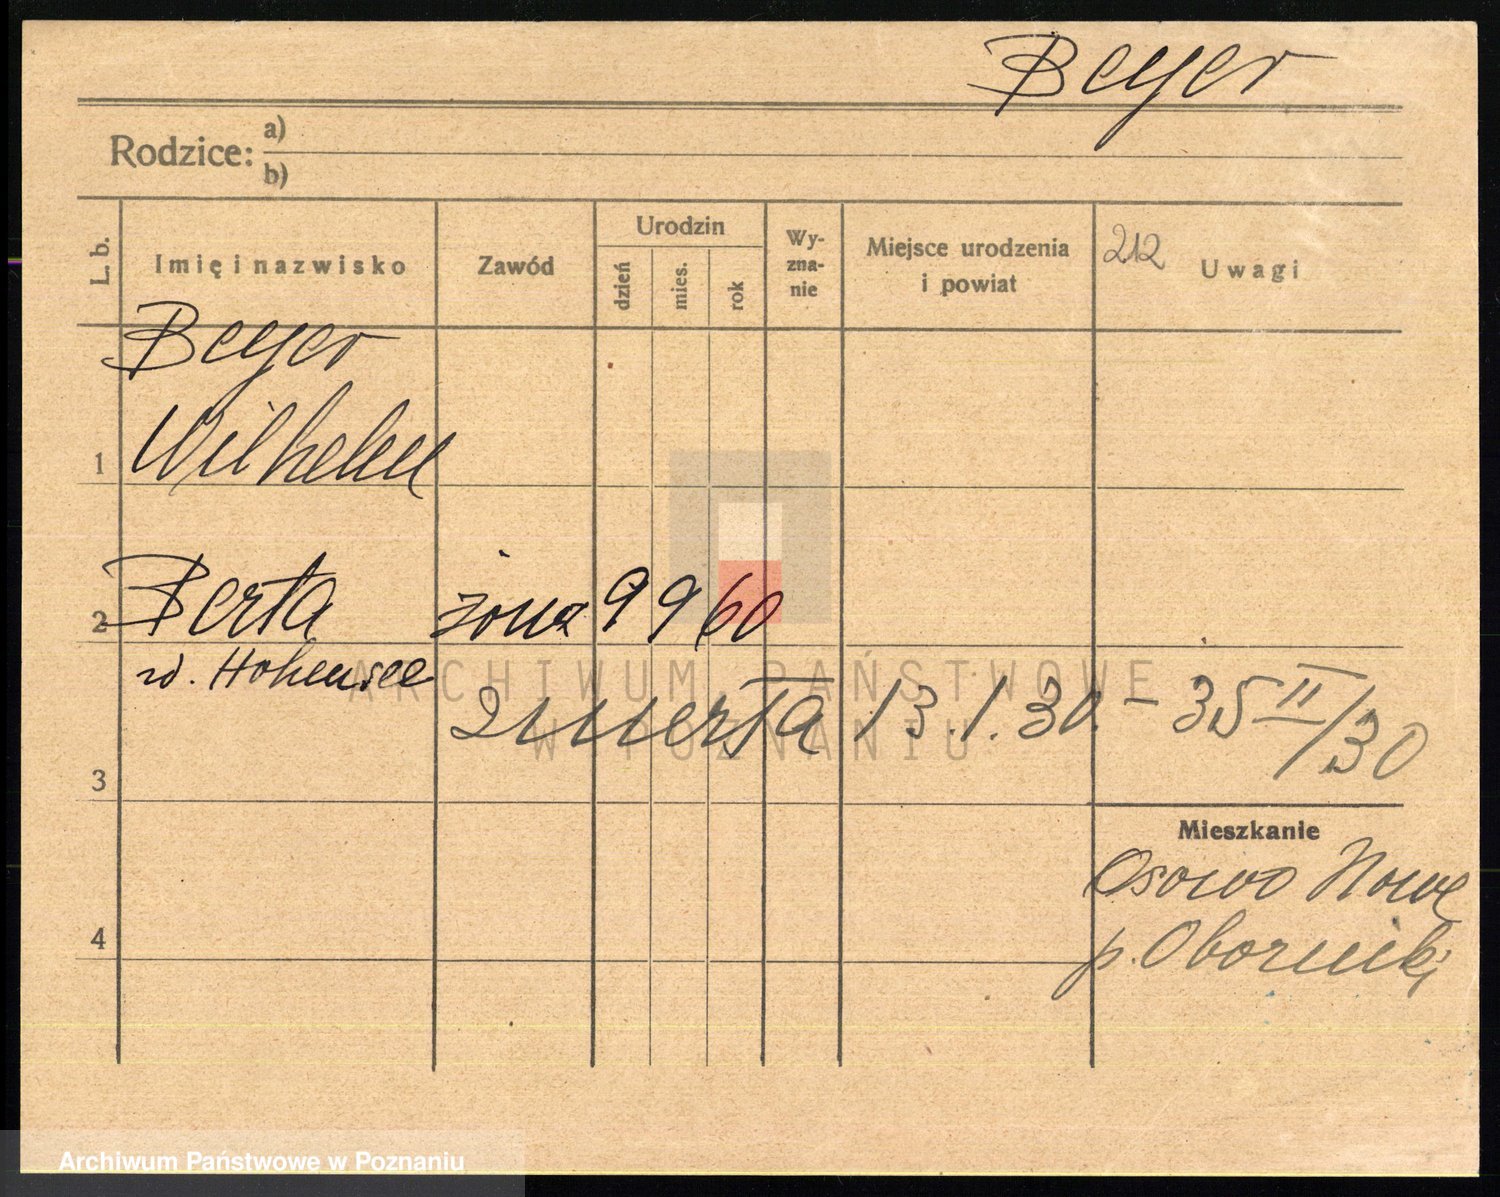 Beyer
Rodzice: a)
b)
L. b. Imię i nazwisko Zawód Urodzin dzień mies. rok Wy-zna-nie Miejsce urodzenia i powiat 212 Uwagi
Beyer
1 Wilhelm
2 Berta żona 9 9 60
w. Hohensee
zmerła 13.1.30. - 35 II/30
3
Mieszkanie
Osowo Nowe
4 p. Oborniki
ARCHIWUM PAŃSTWOWE
W POZNANIU
Archiwum Państwowe w Poznaniu